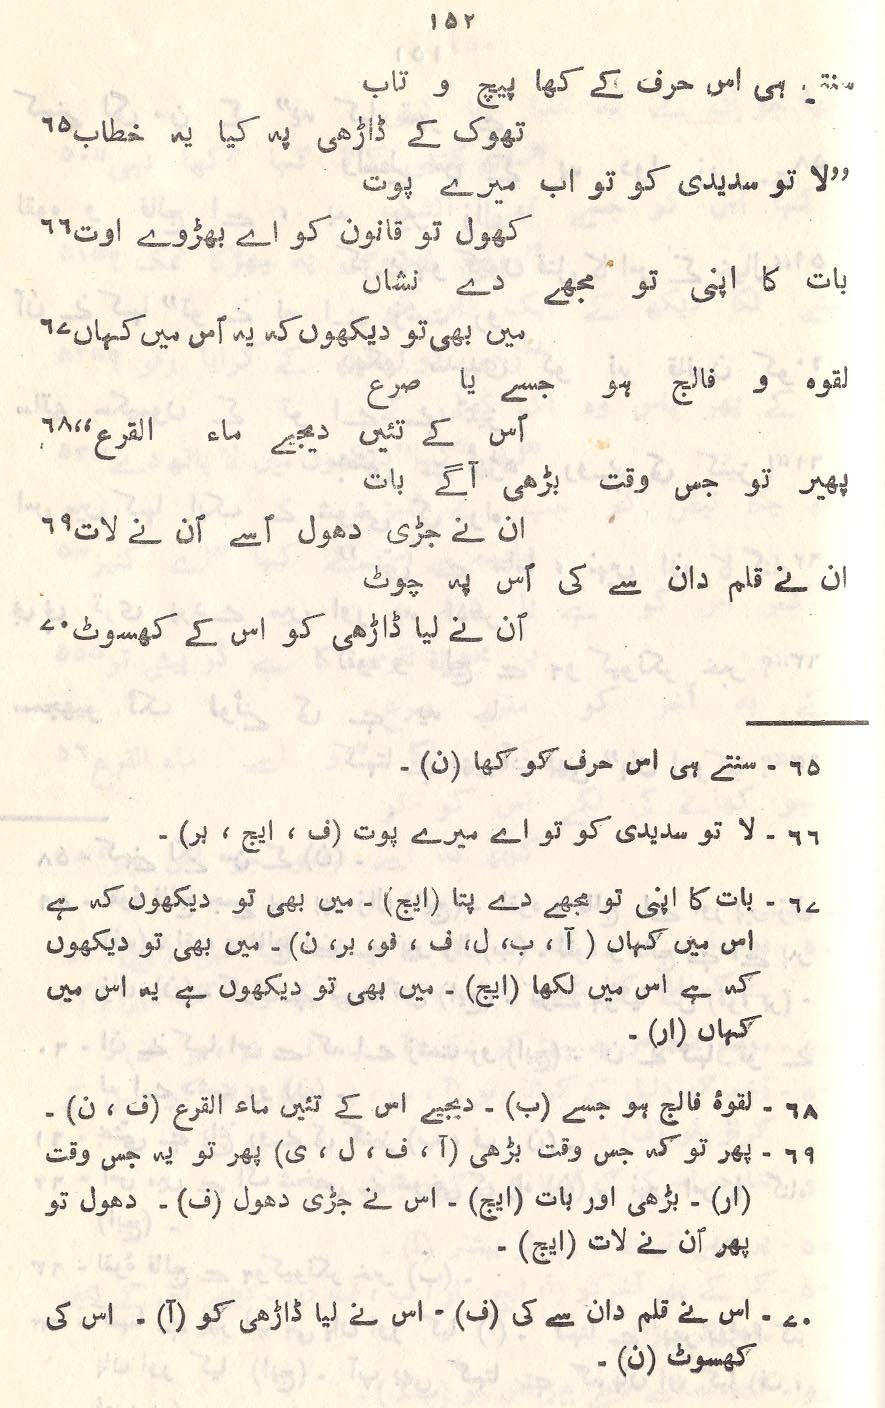 ۱۵۲
سنتے ہی اس حرف کے کھا پیچ و تاب
تھوک کے ڈاڑھی پہ کیا یہ خطاب۶۵
”لا تو سدیدی کو تو اب میرے پوت
کھول تو قانون کو اے بھڑوے اوت۶۶
بات کا اپنی تو مجھے دے نشاں
میں بھی تو دیکھوں کہ یہ اُس میں کہاں۶۷
لقوہ و فالج ہو جسے یا صرع
اُس کے تئیں دیجیے ماء القرع“۶۸
پھیر تو جس وقت بڑھی آگے بات
ان نے جڑی دھول اُسے اُن نے لات۶۹
ان نے قلم دان سے کی اُس پہ چوٹ
اُن نے لیا ڈاڑھی کو اس کے کھسوٹ۷۰
۶۵ - سنتے ہی اس حرف کو کھا (ن) ۔
۶۶ - لا تو سدیدی کو تو اے میرے پوت (ف ، ایچ ، بر) ۔
۶۷ - بات کا اپنی تو مجھے دے پتا (ایچ) ۔ میں بھی تو دیکھوں کہ ہے
اس میں کہاں (آ ، ب، ل، ف ، فو، بر، ن) ۔ میں بھی تو دیکھوں
کہ ہے اس میں لکھا (ایچ) ۔ میں بھی تو دیکھوں ہے یہ اس میں
کہاں (ار) ۔
۶۸ - لقوۂ فالج ہو جسے (ب) ۔ دیجیے اس کے تئیں ماء القرع (ف ، ن) ۔
۶۹ - پھر تو کہ جس وقت بڑھی (آ ، ف ، ل ، ی) پھر تو یہ جس وقت
(ار) ۔ بڑھی اور بات (ایچ) ۔ اس نے جڑی دھول (ف) ۔ دھول تو
پھر اُن نے لات (ایچ) ۔
۷۰ - اس نے قلم دان سے کی (ف) - اس نے لیا ڈاڑھی کو (آ) ۔ اس کی
کھسوٹ (ن) ۔